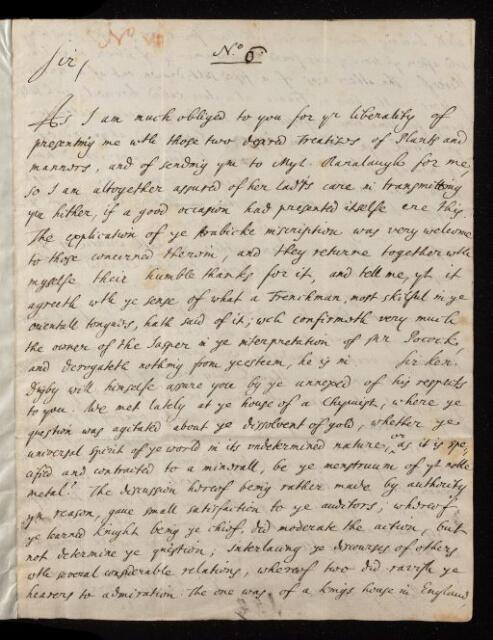 No 6.
Sir,
As I am much obliged to you for yr liberality of
presenting me wth those two desired Treatizes of Plants and
mannors, and of sending ym to Myl. Ranalaugh for me,
so I am altogether assured of her ladps care in transmitting
ym hither, if a good occasion had presented itselfe ere this.
The explication of ye Arabicke inscription was very welcome
to those concerned therein, and they returne together wth
myselfe their humble thanks for it, and tell me, yt it
agreeth wth ye sense of what a Frenchman, most skilful in ye
orientall tongues, hath said of it; wch confirmeth very much
the owner of the Jasper in ye interpretation of Mr Pocock,
and derogateth nothing from ye esteem, he is in Sir Ken.
Digby will himselfe assure you by ye annexed of his respects
to you. We met lately at ye house of a Chymist, where ye
question was agitated about ye dissolvent of gold, whether ye
universal spirit of ye world in its undetermined nature, or as it is spe,
cified and contracted to a minerall, be ye menstruum of yt noble
metal? The discussion hereof being rather made by authority
yn reason, gave small satisfaction to ye auditors; whereof
ye learned Knight being ye chief, did moderate the action, but
not determine ye question; Interlacing ye discourses of others
wth several considerable relations, whereof two did ravish ye
hearers to admiration. The one was, of a kings house in England